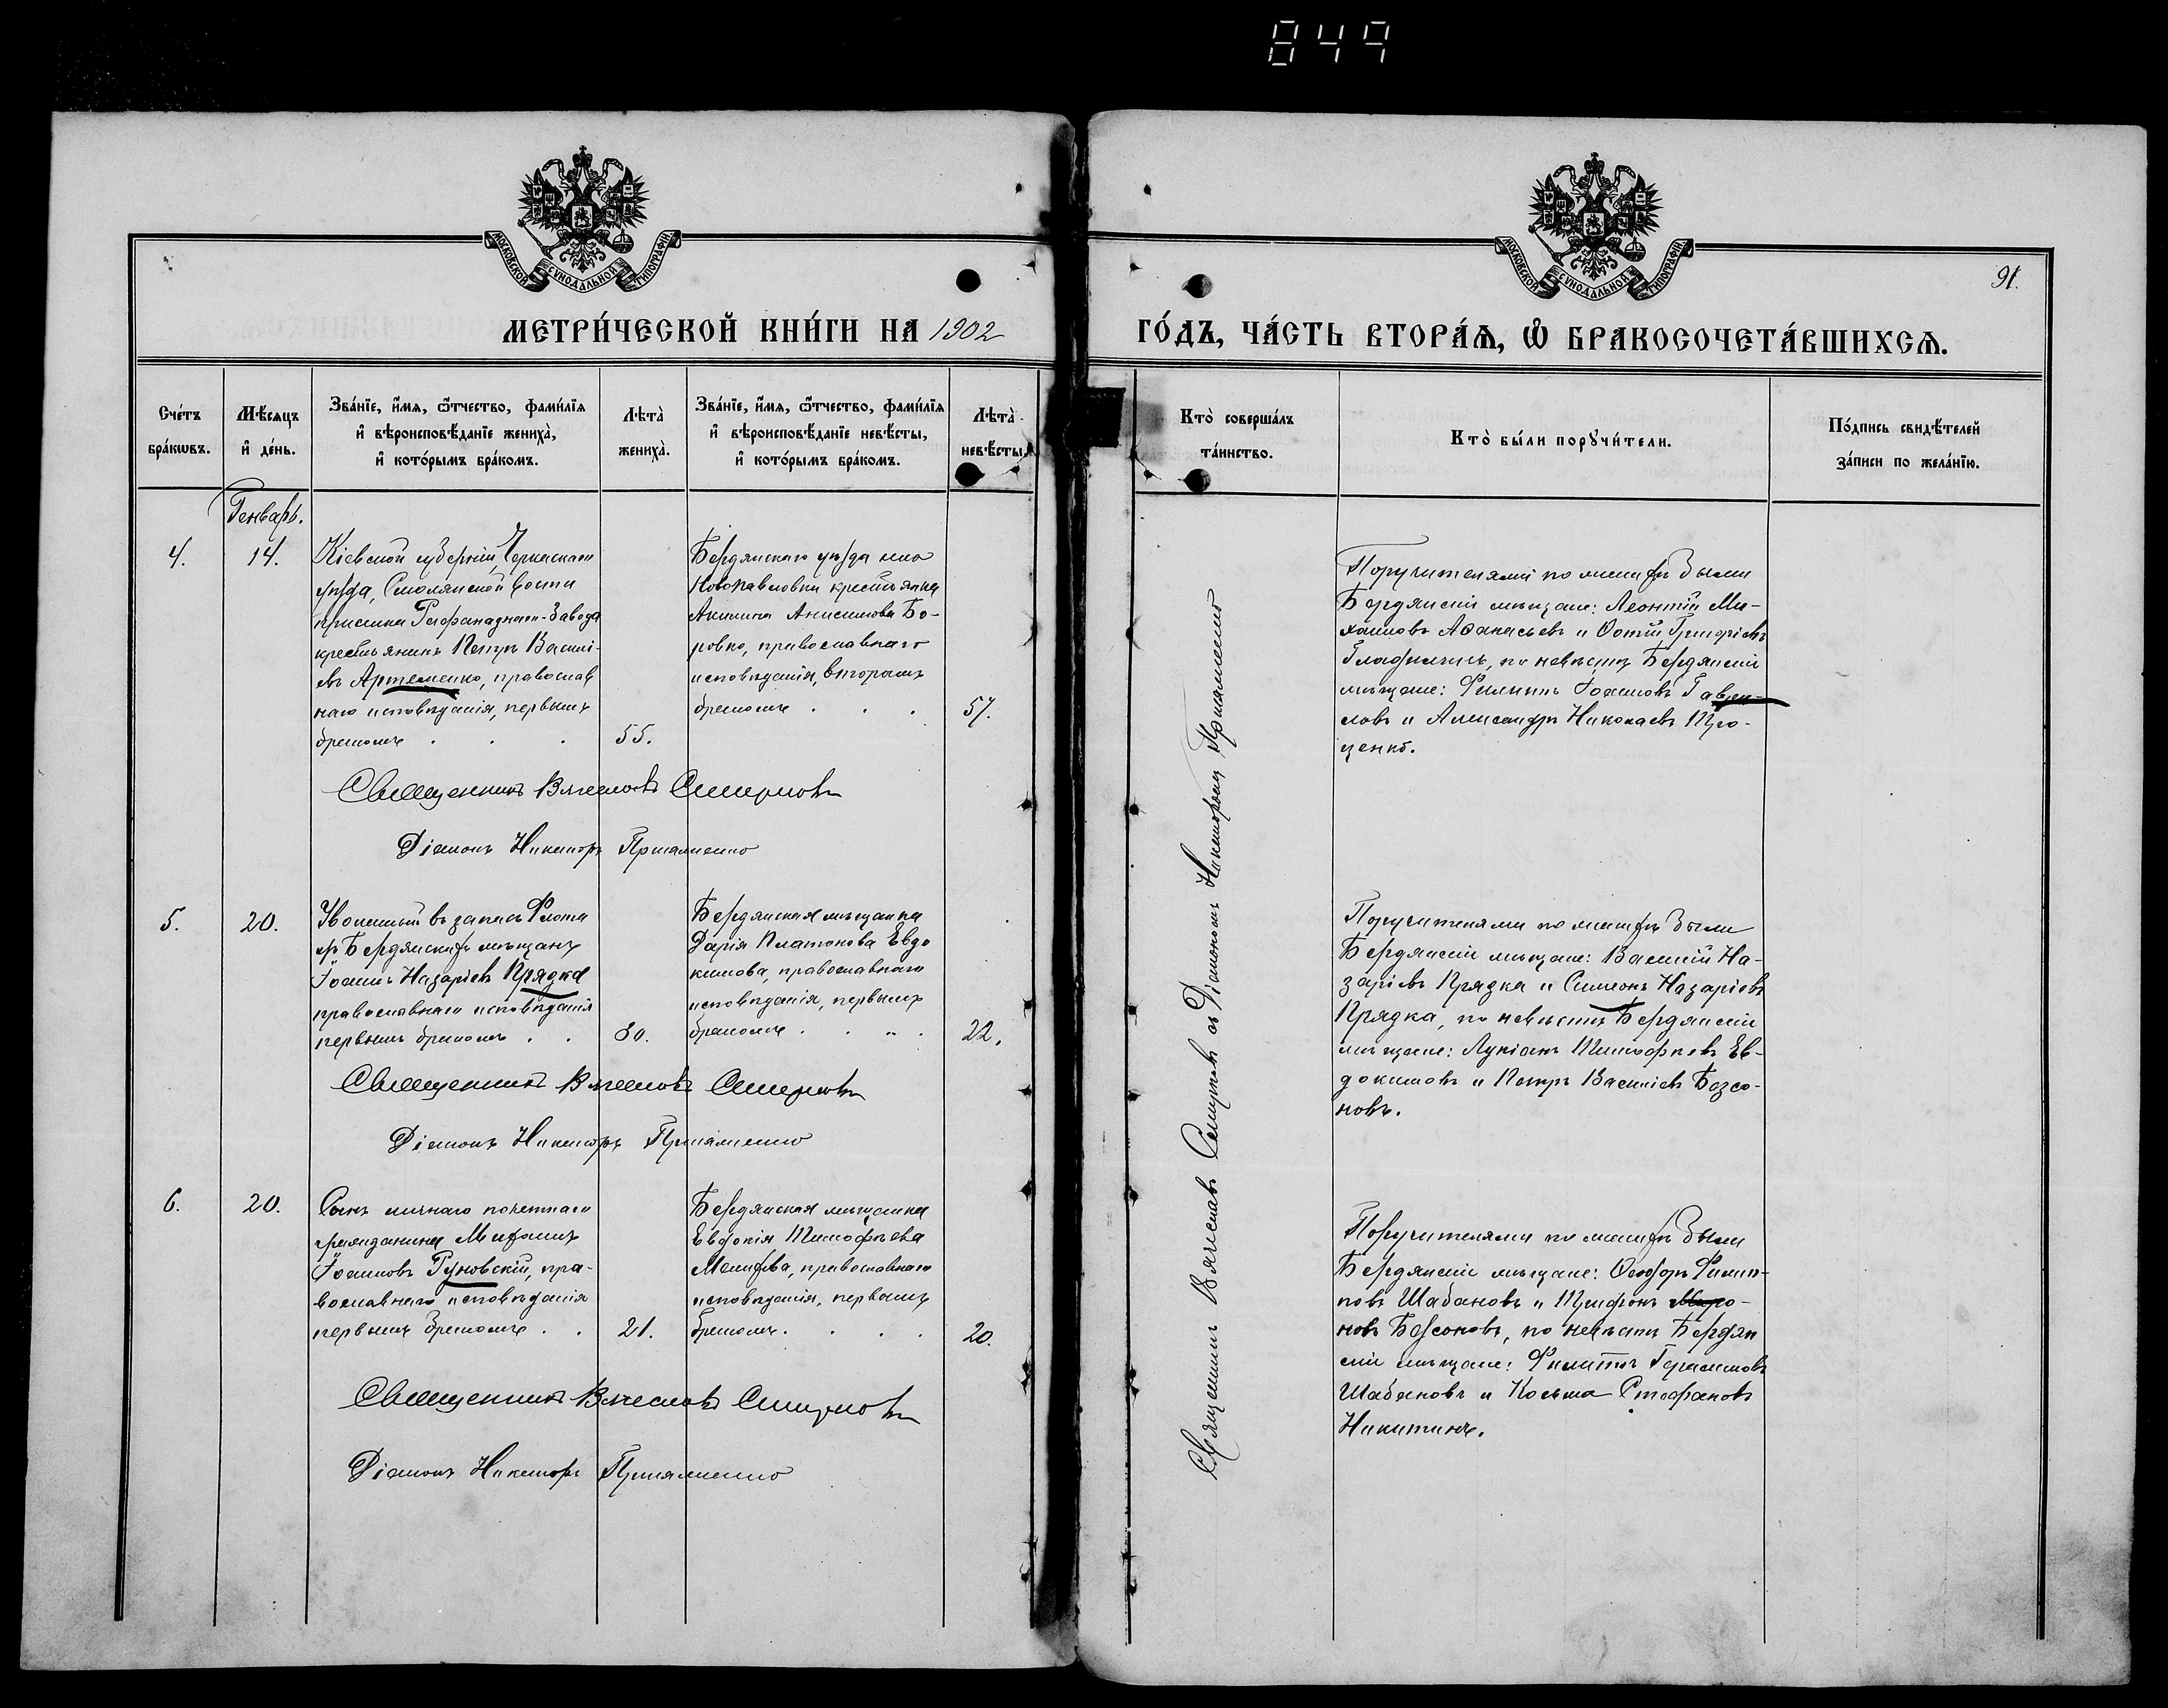 849
МОСКОВСКОЙ СѴНОДАЛЬНОЙ ТИПОГРАФІИ
МОСКОВСКОЙ СѴНОДАЛЬНОЙ ТИПОГРАФІИ
91.
МЕТРИ́ЧЕСКОЙ КНИ́ГИ НА 1902
ГО́ДЪ, ЧА́СТЬ ВТОРА́Ѧ, Ѽ БРАКОСОЧЕТА́ВШИХСѦ.
Счétъ бра́кѡвъ.
Мѣ́сяцъ и҆ де́нь.
Зва́нїе, и҆́мя, ѻ҆́тчество, фами́лїя
и҆ вѣроисповѣ́данїе жениха̀,
и҆ кото́рымъ бра́комъ.
Лѣта̀ жениха̀.
Зва́нїе, и҆́мя, ѻ҆́тчество, фами́лїя
и҆ вѣроисповѣ́данїе невѣ́сты,
и҆ кото́рымъ бра́комъ.
Лѣта̀ невѣ́сты.
Кто̀ соверша́лъ
та́инство.
Кто̀ бы́ли порꙋчи́тели.
По́дпись свидѣ́телей
за́писи по жела́нїю.
Генварь.
4.
14.
Кіевской губерніи, Черкаскаго
уѣзда, Смолянской волости
крестьянинъ Петръ Василі-
евъ Артеменко, православ
наго исповѣданія, первымъ
бракомъ . . .
55.
Бердянскаго уѣзда села
Новопавловки крестьянка
Акилина Анисимова Бо-
ровко, православнаго
исповѣданія, вторымъ
бракомъ . . .
57.
Поручителями по женихѣ были
Бердянскіе мѣщане: Леонтій Ми-
хаиловъ Аѳанасьевъ и Фотій Григоріевъ
по невѣстѣ Бердянскіе
мѣщане: Филиппъ Іоанновъ Гаври-
ловъ и Александръ Николаевъ Про-
ценко.
Священникъ Вячеславъ Смирновъ
Діаконъ Никаноръ
5.
20.
Уволенный въ запасъ Флота
изъ Бердянскихъ мѣщанъ
Іоаннъ Назаріевъ Прядка
православнаго исповѣданія
первымъ бракомъ . .
30.
Бердянская мѣщанка
Дарія Платонова Евдо
кимова, православнаго
исповѣданія, первымъ
бракомъ . . . .
22.
Поручителями по женихѣ были
Бердянскіе мѣщане: Василій На-
заріевъ Прядка и Симеонъ Назаріевъ
Прядка, по невѣстѣ Бердянскіе
мѣщане: Лукіанъ Тимофеевъ Ев-
докимовъ и Петръ Василіевъ Безсо-
новъ.
Священникъ Вячеславъ Смирновъ
Діаконъ Никаноръ
6.
20.
Сынъ личнаго почетнаго
гражданина Михаилъ
Іоанновъ Руновскій, пра-
вославнаго исповѣданія
первымъ бракомъ . .
21.
Бердянская мѣщанка
Евдокія Тимофеева
православнаго
исповѣданія, первымъ
бракомъ. . . .
20.
Поручителями по женихѣ были
Бердянскіе мѣщане: Ѳеодоръ Филип-
повъ Шабановъ и Трифонъ Миро-
новъ Безсоновъ, по невѣстѣ Бердян
скіе мѣщане: Филиппъ Герасимовъ
Шабановъ и Косьма Стефановъ
Никитинъ.
Священникъ Вячеславъ Смирновъ
Діаконъ Никаноръ
Священникъ Вячеславъ Смирновъ съ Діакономъ Никаноромъ